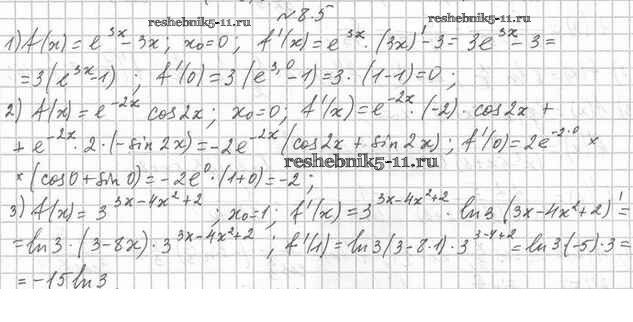 №8.5
reshebnik5-11.ru reshebnik5-11.ru
1) f(x)=e^{3x}-3x; x₀=0; f'(x)=e^{3x}·(3x)'-3=3e^{3x}-3=
=3(e^{3x}-1); f'(0)=3(e^{3,0}-1)=3·(1-1)=0;
2) f(x)=e^{-2x} cos2x; x₀=0; f'(x)=e^{-2x}·(-2)·cos2x+
+e^{-2x}·2·(-sin2x)=-2e^{-2x}(cos2x+sin2x); f'(0)=2e^{-2·0}×
reshebnik5-11.ru
×(cos0+sin0)=-2e⁰·(1+0)=-2;
3) f(x)=3^{3x-4x²+2}; x₀=1; f'(x)=3^{3x-4x²+2}·ln3(3x-4x²+2)'=
=ln3·(3-8x)·3^{3x-4x²+2}; f'(1)=ln3(3-8·1)·3^{3-4+2}=ln3(-5)·3=
=-15ln3